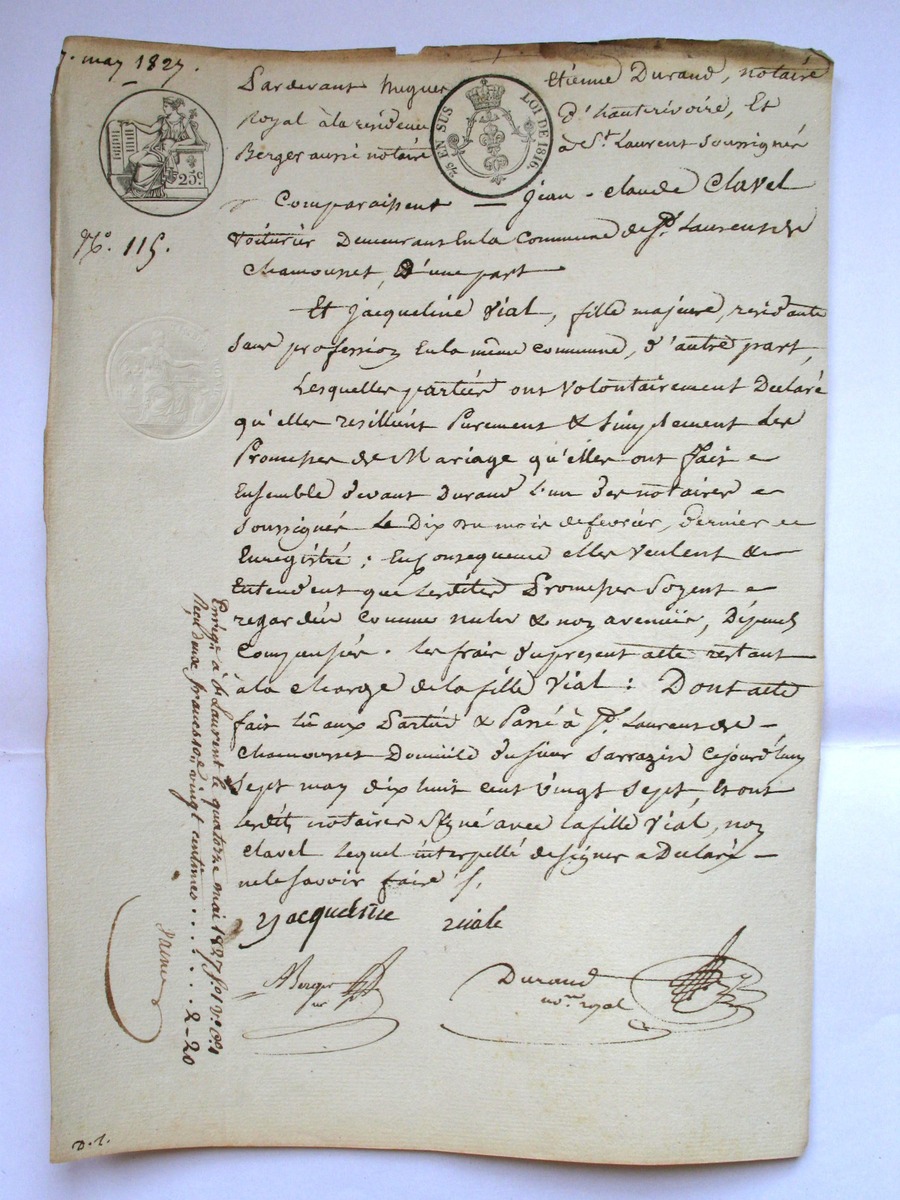 7. may 1827.
Pardevant Hugues Etienne Durand, notaire
Royal à la résidence d'hauterivoire, Et
Berger aussi notaire à St. Laurent soussignés
25 EN SUS LOI DE 1816.
25 c.
Comparaissent — Jean-Claude Clavel
N.o 115.
Voiturier Demeurant En la Commune de St. Laurent de
Chamousset, D'une part
Et Jacqueline Vial, fille majeure, residante
sans profession En la même commune, d'autre part,
Lesquelles parties ont Volontairement Declaré
qu'elles resillient Purement & simplement les
Promesses de Mariage qu'elles ont fait
Ensemble devant Durand l'un des notaires
soussignés le Dix du mois de fevrier, dernier
Enregistré ; En Consequence elles veulent &
Entendent que lesdites Promesses Soyent
regardées comme nules & non avenües, Dépends
Compensés. les frais du present acte restant
à la charge de la fille Vial : Dont acte
fait lû aux Parties & Passé à St. Laurent de
Chamousset Domicile du sieur Sarrazin Cejourd'huy
Sept may dix huit cent vingt sept, Et ont
lesdits notaires signé avec la fille Vial, non
Clavel lequel interpellé de signer a Declaré
ne le savoir faire /.
Jacqueline viale
ABerger
nre
Durand
nore royal
Enregté à St Laurent le quatorze mai 1827 fo 1 vo Ce 1
Reçu deux francs vingt centimes . . . . . . 2-20
D. l.